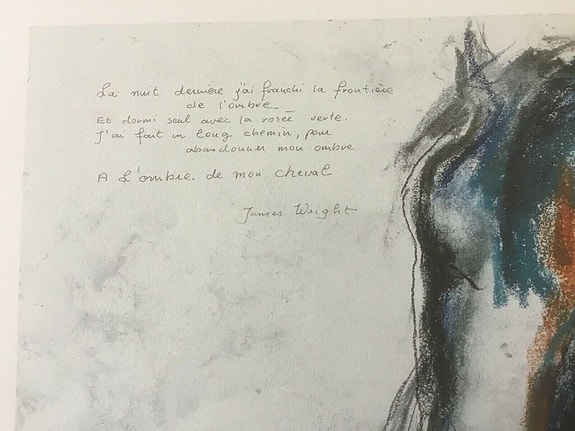 La nuit dernière j'ai franchi la frontière
de l'ombre
Et dormi seul avec la rosée verte.
J'ai fait un long chemin, pour
abandonner mon ombre
A l'ombre de mon cheval
James Wright